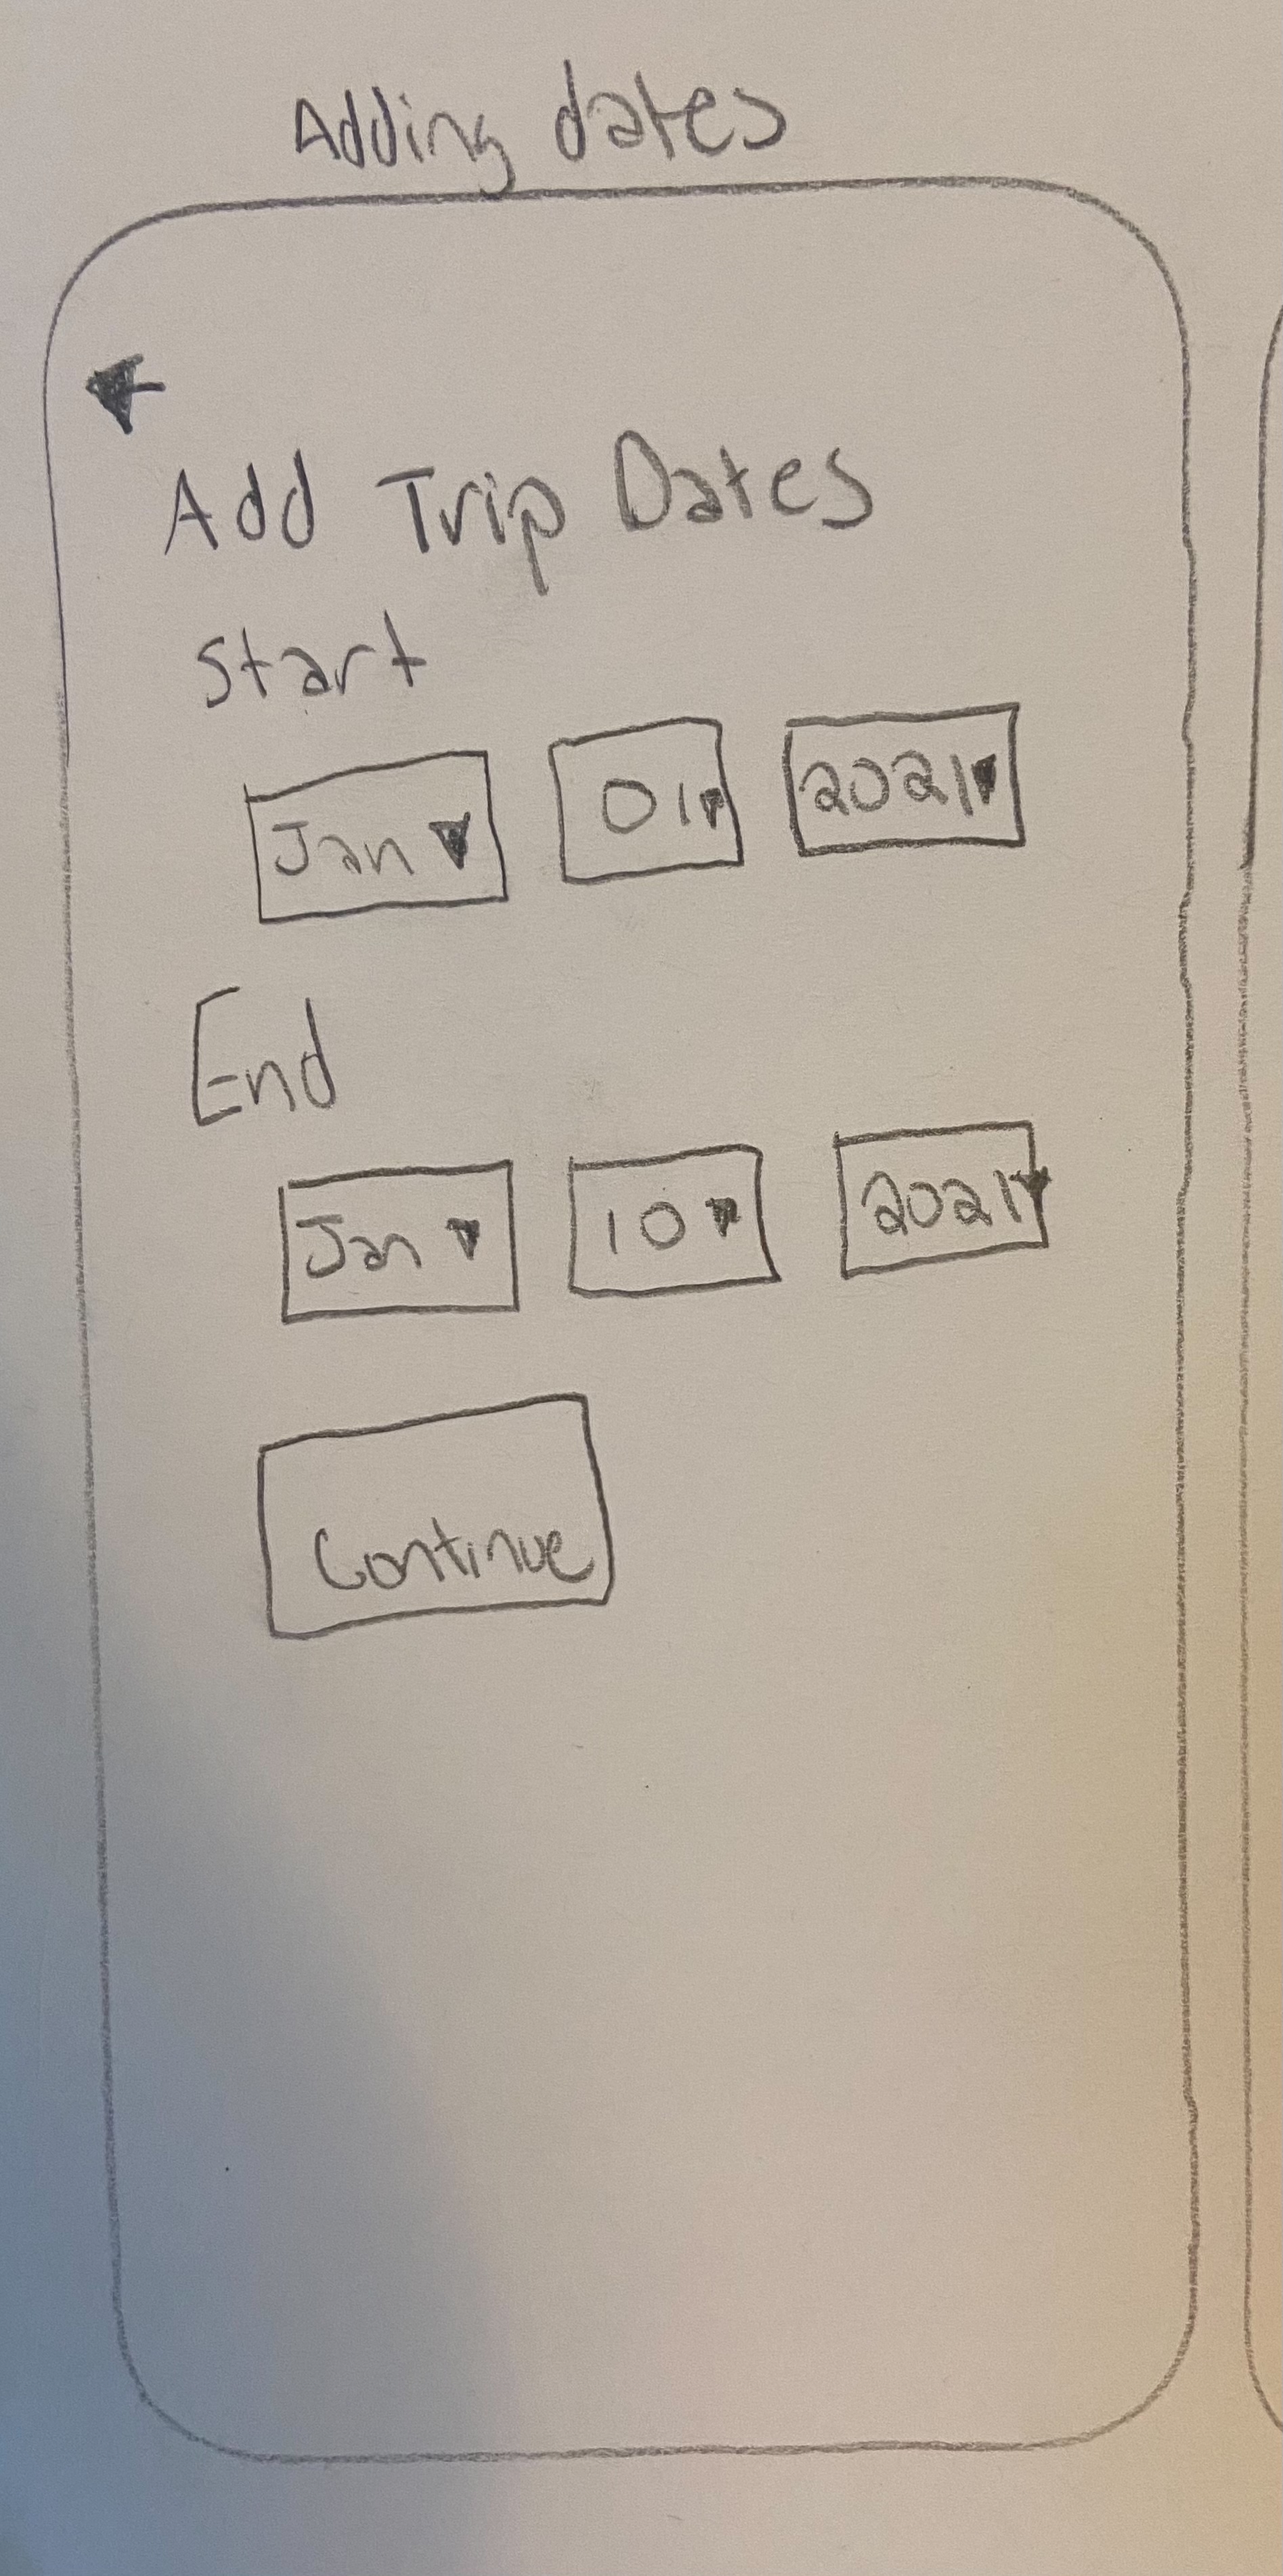 Adding dates
Add Trip Dates
Start
Jan 01 2021
End
Jan 10 2021
Continue